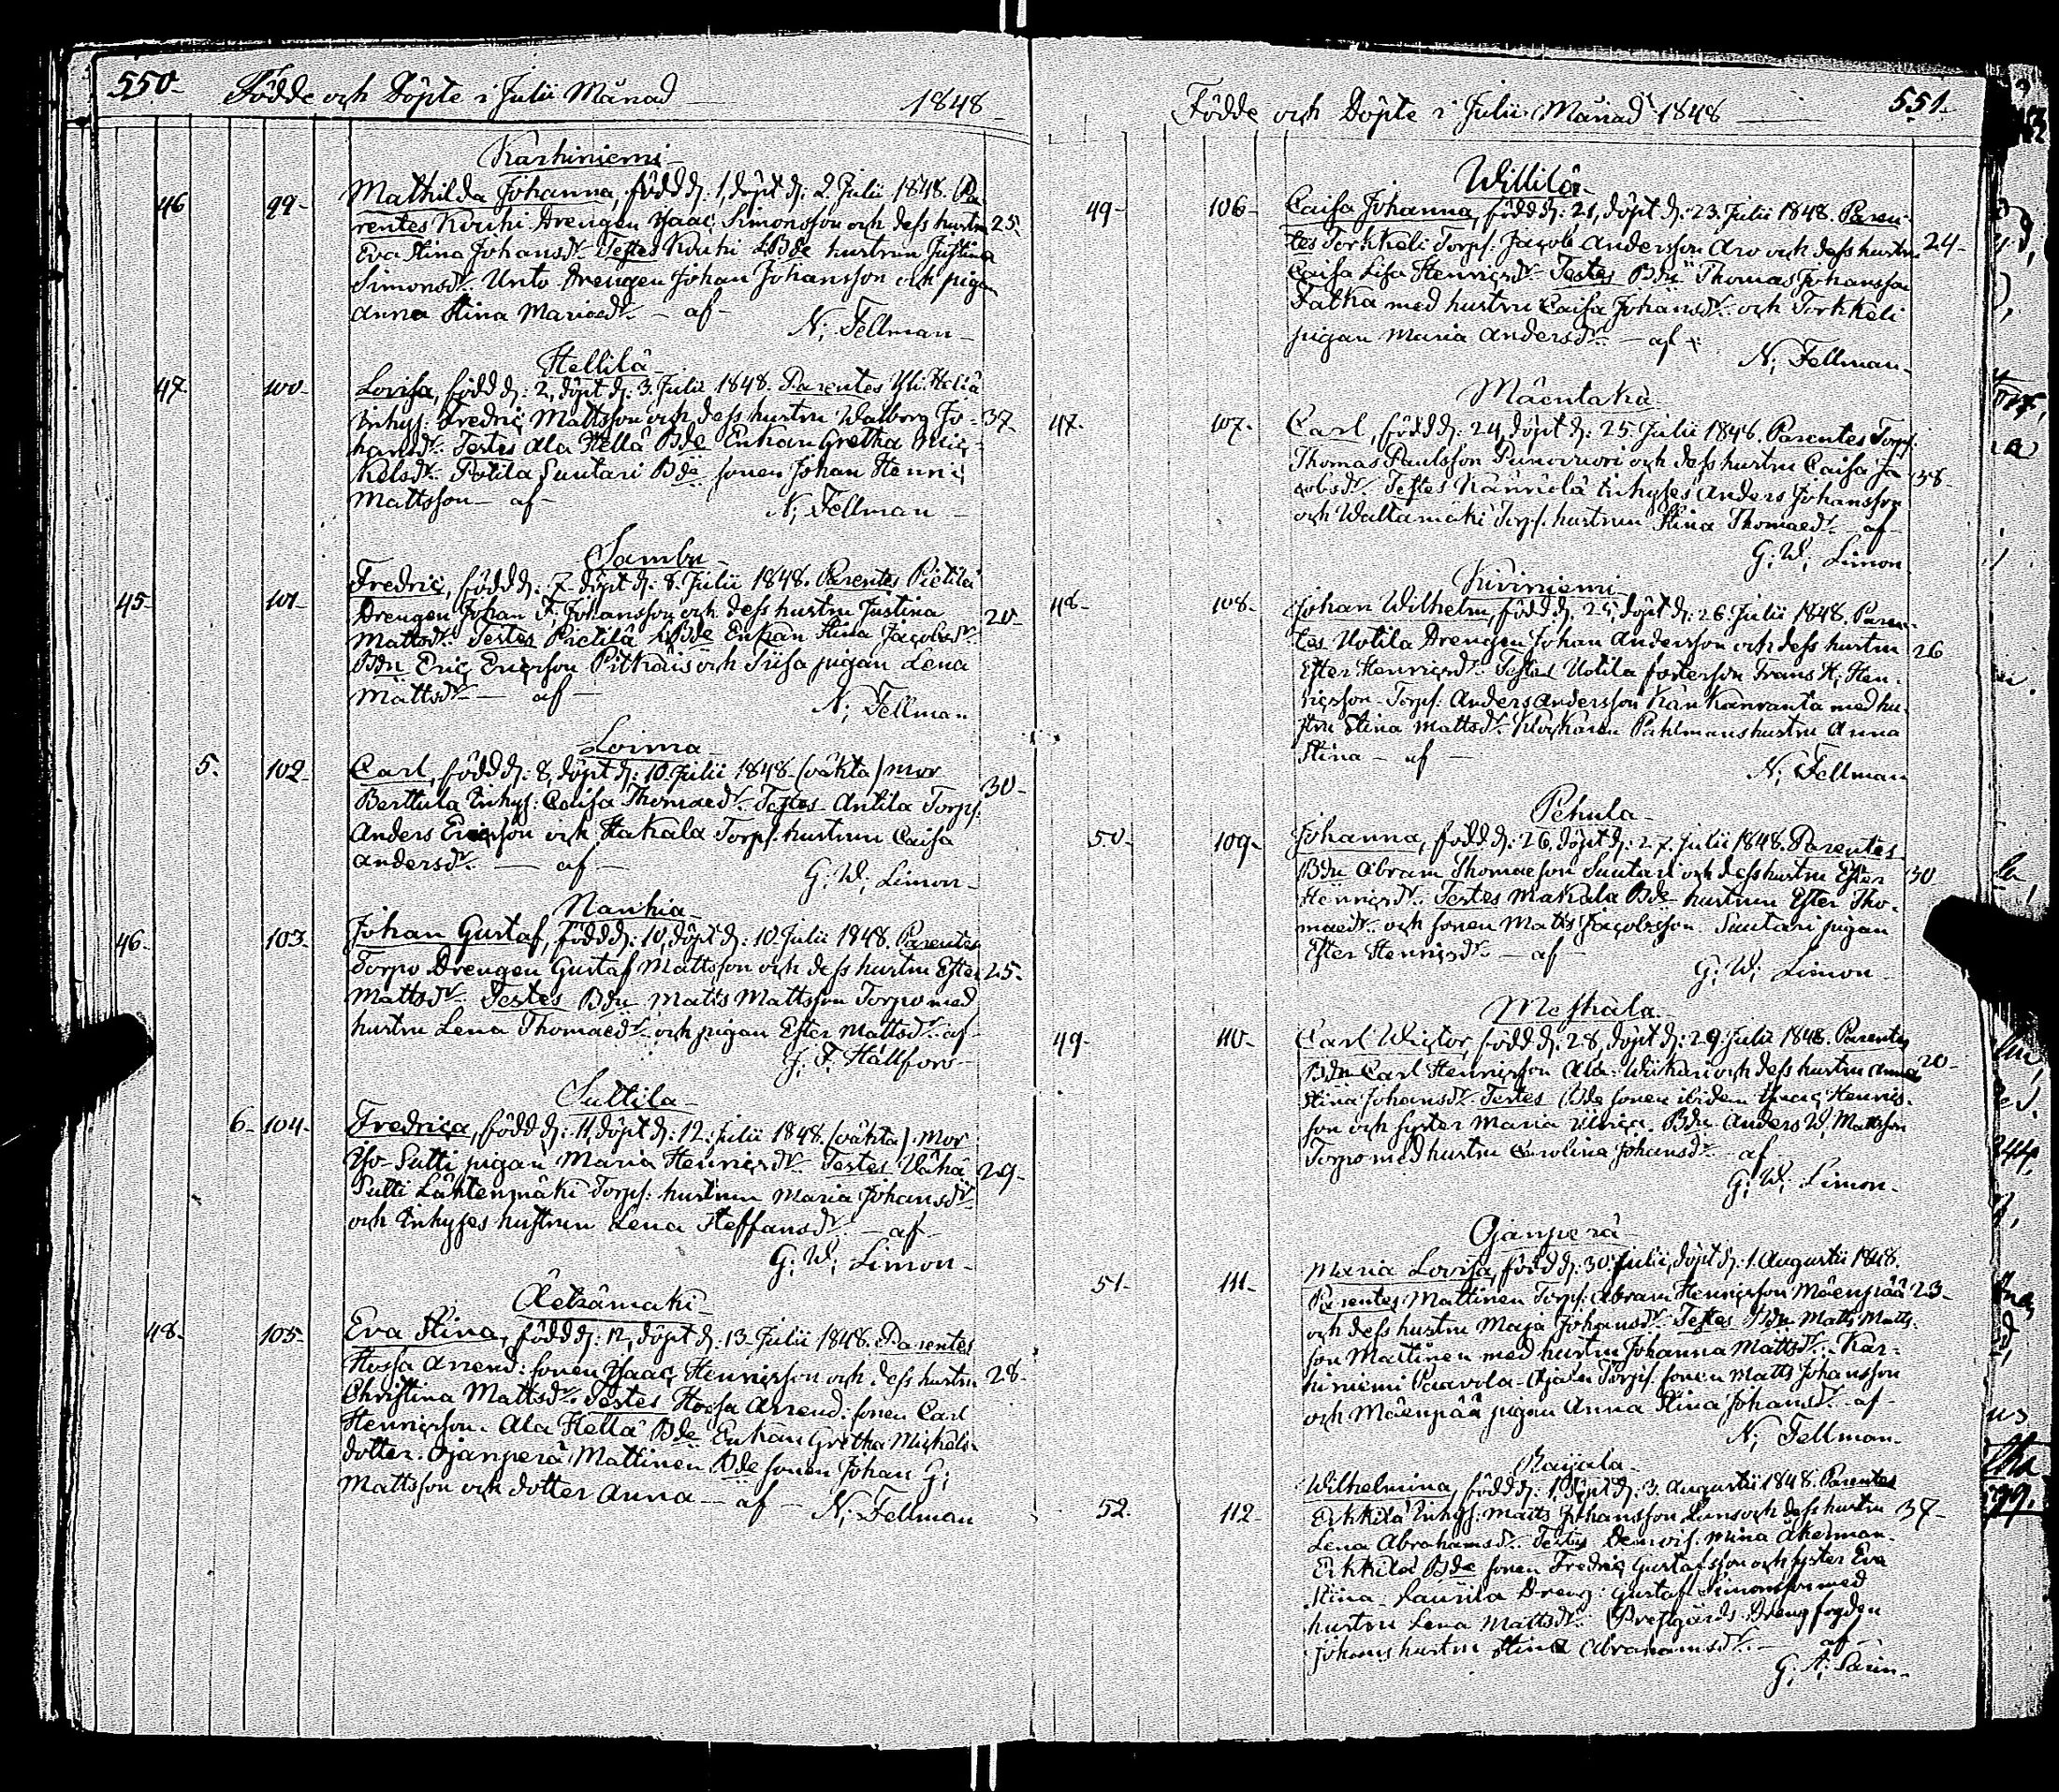 550. Födde och Döpte i Julii Månad 1848
Karhiniemi
46 99 Mathilda Johanna, född d: 1, döpt d: 2 Julii 1848. Pa-
rentes Kouhi Drengen Isaac Simonsson och dess hustru 25.
Eva Stina Johansdr. Testes Kouhi Bde hustrun Justina
Simonsdr. Unto Drengen Johan Johansson och pigan
Anna Stina Mariaedr. — af —
N; Fellman
Hellilä
47. 100. Lovisa, född d: 2, döpt d: 3. Julii 1848. Parentes Yli Hellä
Inhys: Fredric Mattsson och dess hustru Walborg Jo- 37.
hansdr. Testes Ala Hellä Bde Enkan Gretha Mic-
kelsdr. Potila Suutari Bde sonen Johan Henric
Mattsson — af —
N; Fellman
Sambu
45. 101. Fredric, född d: 7 döpt d: 8. Julii 1848. Parentes Pietilä
Drengen Johan F. Johansson och dess hustru Justina 20.
Mattsdr. Testes Pietilä Bde Enkan Stina Jacobsdr.
Bdn Eric Ericsson Pitkäis och Siisa pigan Lena
Mattsdr. — af —
N; Fellman
Loima
5. 102 Carl, född d: 8, döpt d: 10. Julii 1848. (oäkta) mor
Berttula Inhys: Caisa Thomaedr. Testes Antila Torps. 30
Anders Ericsson och Hakala Torps. hustrun Caisa
Andersdr. — af —
G; W; Limon
Nanhia
46. 103. Johan Gustaf, född d: 10, döpt d: 10. Julii 1848. Parentes
Torpo Drengen Gustaf Mattsson och dess hustru Ester 25.
Mattsdr. Testes Bdn Matts Mattsson Torpo med
hustru Lena Thomaedr. och pigan Ester Mattsdr. af
J. F. Hällfors
Suttila
6. 104. Fredrica, född d: 11, döpt d: 12. Julii 1848. (oäkta) mor
Iso-Sutti pigan Maria Henricsdr. Testes Vähä 29
Sutti Lähtenmäki Torps: hustrun Maria Johansdr.
och Inhyses hustrun Lena Steffansdr. — af —
G; W; Limon
Äetsämäki
48. 105. Eva Stina, född d: 12, döpt d: 13. Julii 1848. Parentes
Hossa Arrend: sonen Isaac Henricsson och dess hustru 28.
Christina Mattsdr. Testes Hossa Arrend: sonen Carl
Henricsson. Ala Hellä Bde Enkan Gretha Mickels-
dotter. Ojanperä Mattinen Bde sonen Johan G;
Mattsson och dotter Anna — af — N; Fellman
Födde och Döpte i Julii Månad 1848 551.
Willilä
49 106 Caisa Johanna, född d: 21, döpt d: 23. Julii 1848. Paren-
tes Torkkeli Torps: Jacob Andersson Aro och dess hustru 24
Caisa Lisa Henricsdr. Testes Bdn Thomas Johansson
Fatka med hustru Caisa Johansdr. och Torkkeli
pigan Maria Andersdr. — af
N; Fellman
Mäentaka
47. 107. Carl, född d: 24, döpt d: 25. Julii 1848. Parentes Torps:
Thomas Paulsson Punovuori och dess hustru Caisa Ja- 38
cobsdr. Testes Nännölä Inhyses Anders Johansson
och Waltamäki Torps. hustrun Stina Thomaedr. af
G; W; Limon
Kiviniemi
48. 108. Johan Wilhelm, född d: 25, döpt d: 26. Julii 1848. Paren-
tes Uotila Drengen Johan Andersson och dess hustru 26
Ester Henricsdr. Testes Uotila fosterson Frans H; Hen-
ricsson. Torps: Anders Andersson Känkänranta med hu-
stru Stina Mattsdr. Klockaren Pahlmans hustru Anna
Stina — af —
N; Fellman
Pehula
50. 109. Johanna, född d: 26, döpt d: 27. Julii 1848. Parentes
Bdn Abram Thomaeson Suutari och dess hustru Ester 30
Henricsdr. Testes Makala Bde hustrun Ester Tho-
maedr. och sonen Matts Jacobsson. Suutari pigan
Ester Henricsdr. — af —
G; W; Limon
Meskala
49. 110. Carl Wictor, född d: 28, döpt d: 29. Julii 1848. Parentes
Bdn Carl Henricsson Ala-Wiikari och dess hustru Anna 20
Stina Johansdr. Testes Bde sonen ibidem Isaac Henrics-
son och syster Maria Ulrica. Bdn Anders W; Mattsson
Torpo med hustru Carolina Johansdr. — af
G; W; Limon
Ojanperä
51. 111. Maria Lovisa, född d: 30 Julii, döpt d: 1. Augustii 1848.
Parentes Mattinen Torps: Abram Henricsson Mäenpää 23
och dess hustru Maja Johansdr. Testes Bdn Matts Matts-
son Mattinen med hustru Johanna Mattsdr. Kar-
hiniemi Paavola-Ojala Torps. sonen Matts Johansson
och Mäenpää pigan Anna Stina Johansdr. af
N; Fellman
Raijala
52. 112 Wilhelmina, född d: 1, döpt d: 3. Augustii 1848. Parentes
Erkkilä Inhys. Matts Johansson Luns och dess hustru 37
Lena Abrahamsdr. Testes Demois. Mina Åkerman.
Erkkilä Bde sonen Fredric Gustafsson och syster Eva
Stina. Laurila Dreng: Gustaf Simonsson med
hustru Lena Mattsdr. Prestgårds Drengfogden
Johans hustru Stina Abrahamsdr. — af
G; A; Sarin